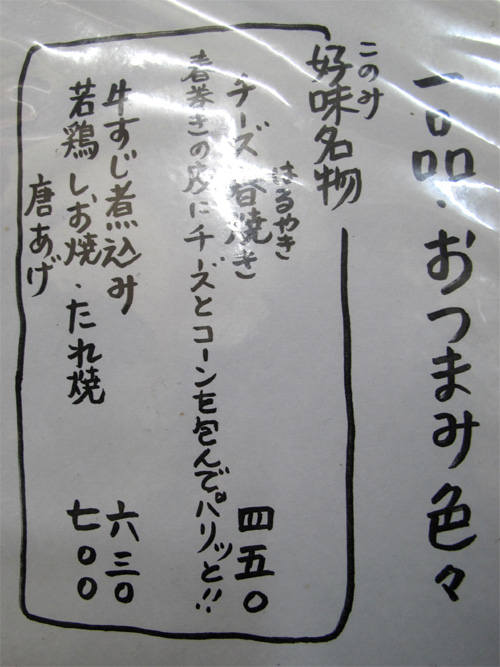 一品・おつまみ色々
このみ
好味名物
はるやき
チーズ春焼き 四五〇
春巻きの皮にチーズとコーンを包んでパリッと!!
牛すじ煮込み 六三〇
若鶏しお焼・たれ焼 七〇〇
唐あげ